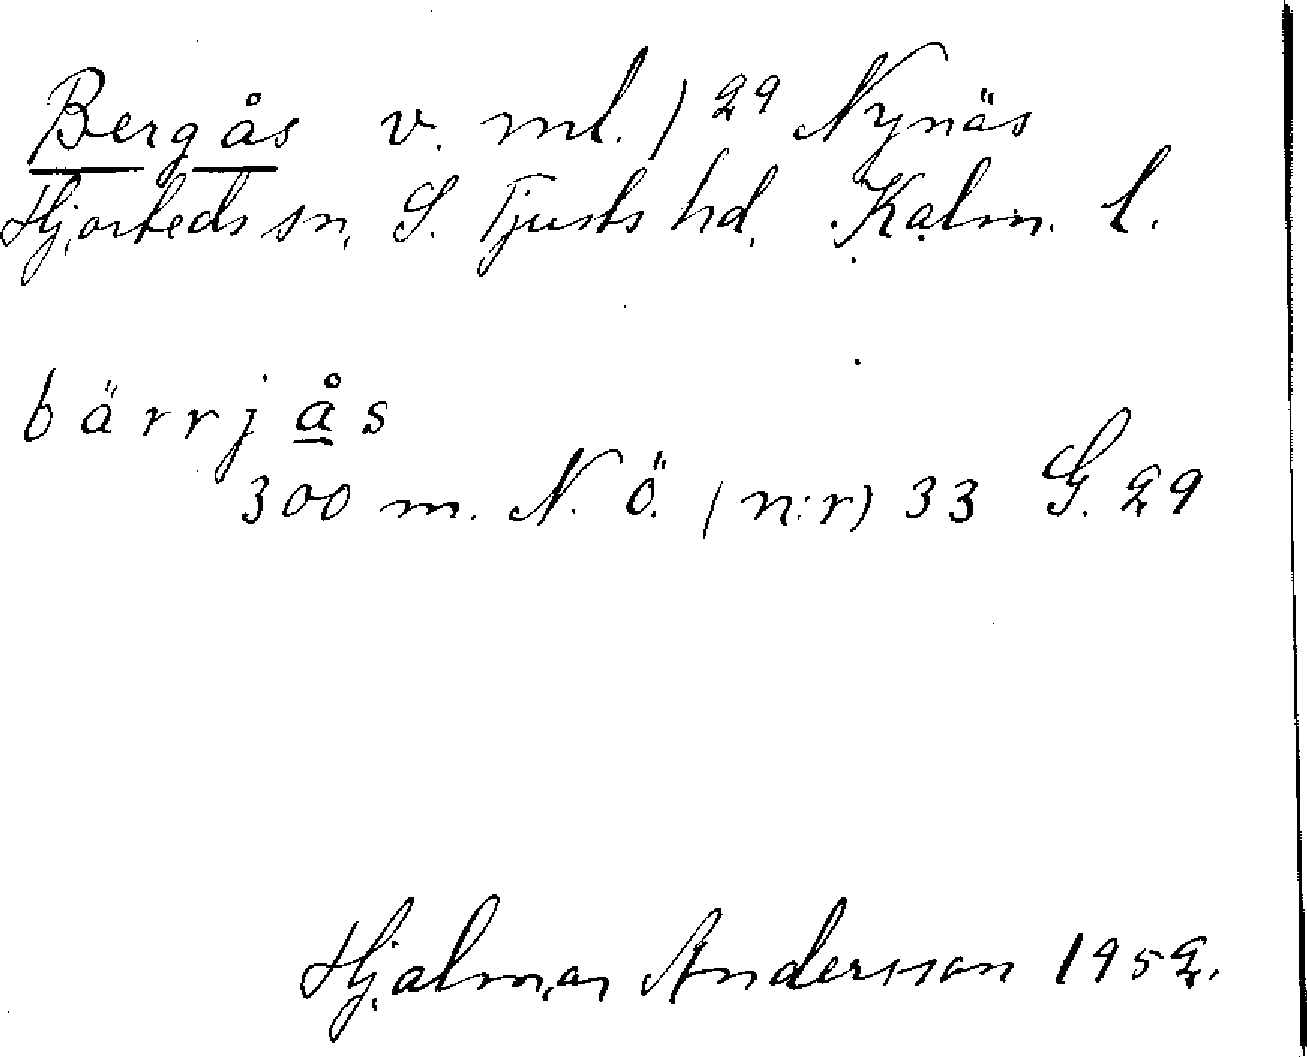 Bergås v. ml. ) 29 Nynäs
Hjorteds sn. S. Tjusts hd. Kalm. l.
bärrjås
300 m. N. Ö. (n:r) 33 G. 29
Hjalmar Andersson 1952.